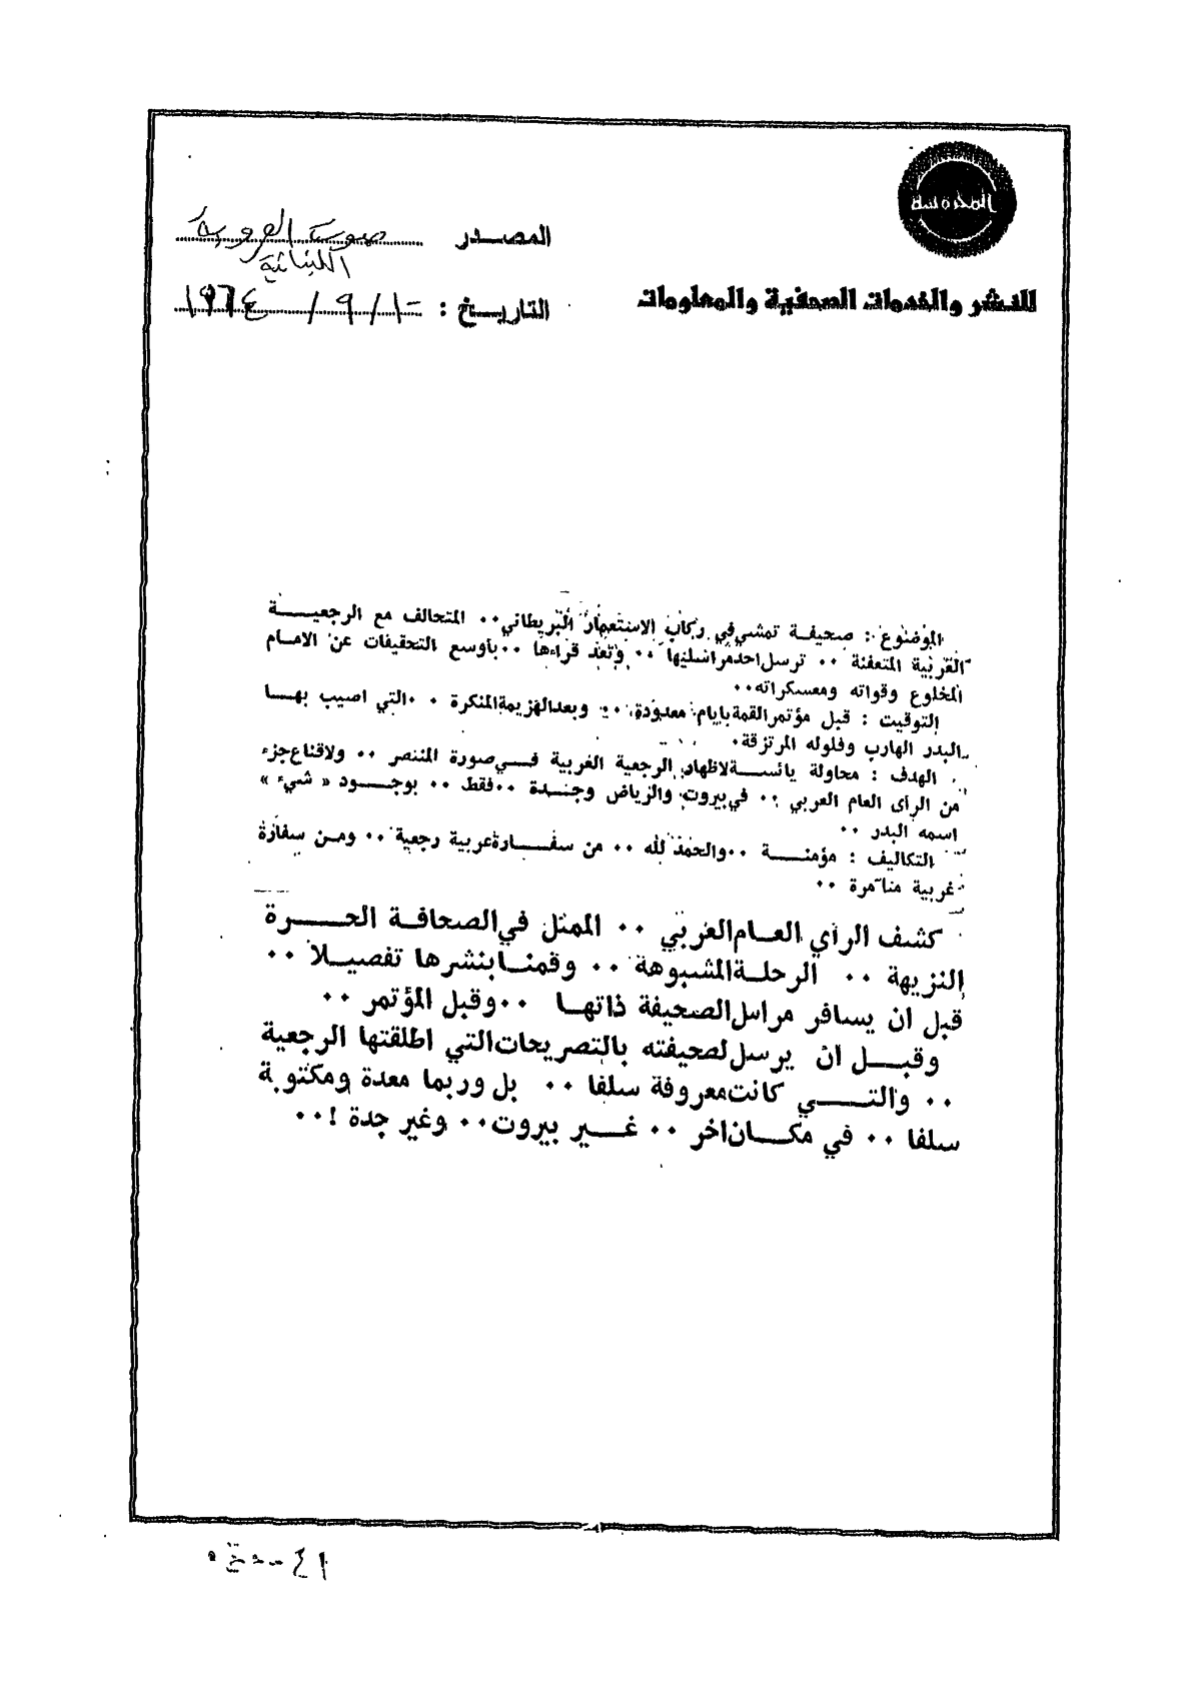 المحروسة
للنشر والخدمات الصحفية والمعلومات
المصدر صوت العروبة
اللبنانية
التاريخ : ١٠/٩/١٩٦٤
الموضوع : صحيفة تمشي في ركاب الاستعمار البريطاني ٠٠ المتحالف مع الرجعية
العربية المتعفنة ٠٠ ترسل احد مراسليها ٠٠ وتعد قراءها ٠٠ بأوسع التحقيقات عن الامام
المخلوع وقواته ومعسكراته ٠٠
التوقيت : قبل مؤتمر القمة بايام معدودة ٠٠ وبعد الهزيمة المنكرة ٠٠ التي اصيب بها
البدر الهارب وفلوله المرتزقة ٠
الهدف : محاولة يائسة لاظهار الرجعية الغربية في صورة المنتصر ٠٠ ولاقناع جزء
من الرأى العام العربي ٠٠ في بيروت والرياض وجدة ٠٠ فقط ٠٠ بوجود « شيء »
اسمه البدر ٠٠
التكاليف : مؤمنة ٠٠ والحمد لله ٠٠ من سفارة عربية رجعية ٠٠ ومن سفارة
غربية متآمرة ٠٠
كشف الرأي العام العربي ٠٠ الممثل في الصحافة الحرة
النزيهة ٠٠ الرحلة المشبوهة ٠٠ وقمنا بنشرها تفصيلا ٠٠
قبل ان يسافر مراسل الصحيفة ذاتها ٠٠ وقبل المؤتمر ٠٠
وقبل ان يرسل لصحيفته بالتصريحات التي اطلقتها الرجعية
٠٠ والتي كانت معروفة سلفا ٠٠ بل وربما معدة ومكتوبة
سلفا ٠٠ في مكان اخر ٠٠ غير بيروت ٠٠ وغير جدة ! ٠٠